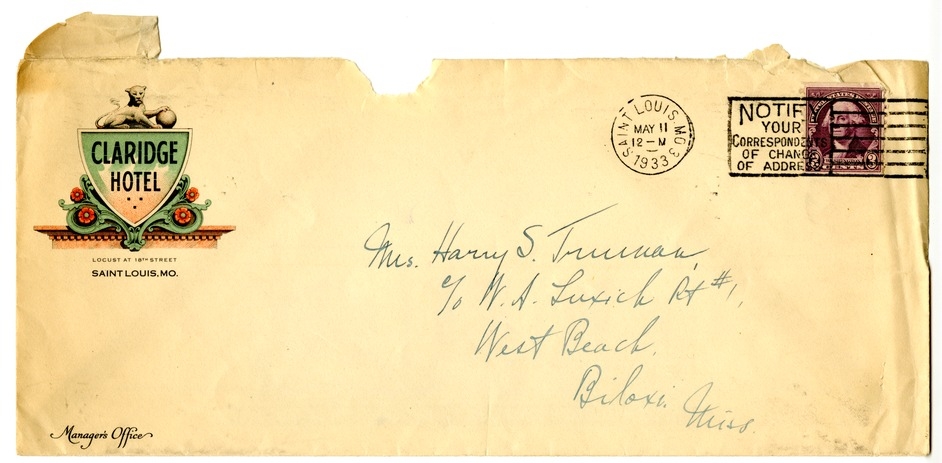 CLARIDGE
HOTEL
LOCUST AT 18TH STREET
SAINT LOUIS, MO.
SAINT LOUIS, MO.
MAY 11
12 - M
1933
3
NOTIFY
YOUR
CORRESPONDENTS
OF CHANGE
OF ADDRESS
Mrs. Harry S. Truman,
c/o W. A. Luxich Rt #1,
West Beach,
Biloxi. Miss.
Manager's Office